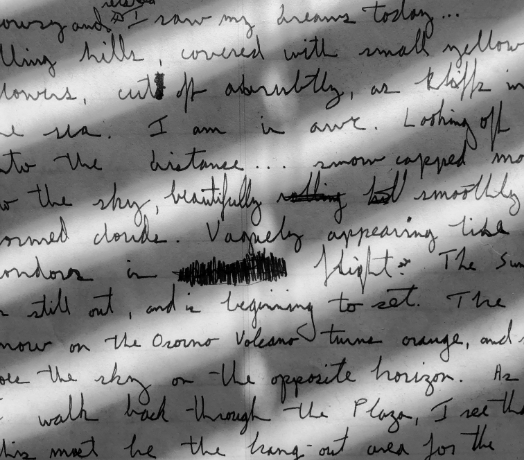 and I saw my dreams today...
lling hills, covered with small yellow
lowers, cut off abruptly, as kliffs in
he sea. I am in awe. Looking off
nto the distance.... snow capped mo
w the sky, beautifully smoothly
ormed clouds. Vaguely appearing like
ondors in flight. The Sun
s still out, and is beginning to set. The
now on the Osorno Volcano turns orange, and s
oes the sky on the opposite horizon. As
I walk back through the Plaza, I see tha
his must be the hang-out area for the